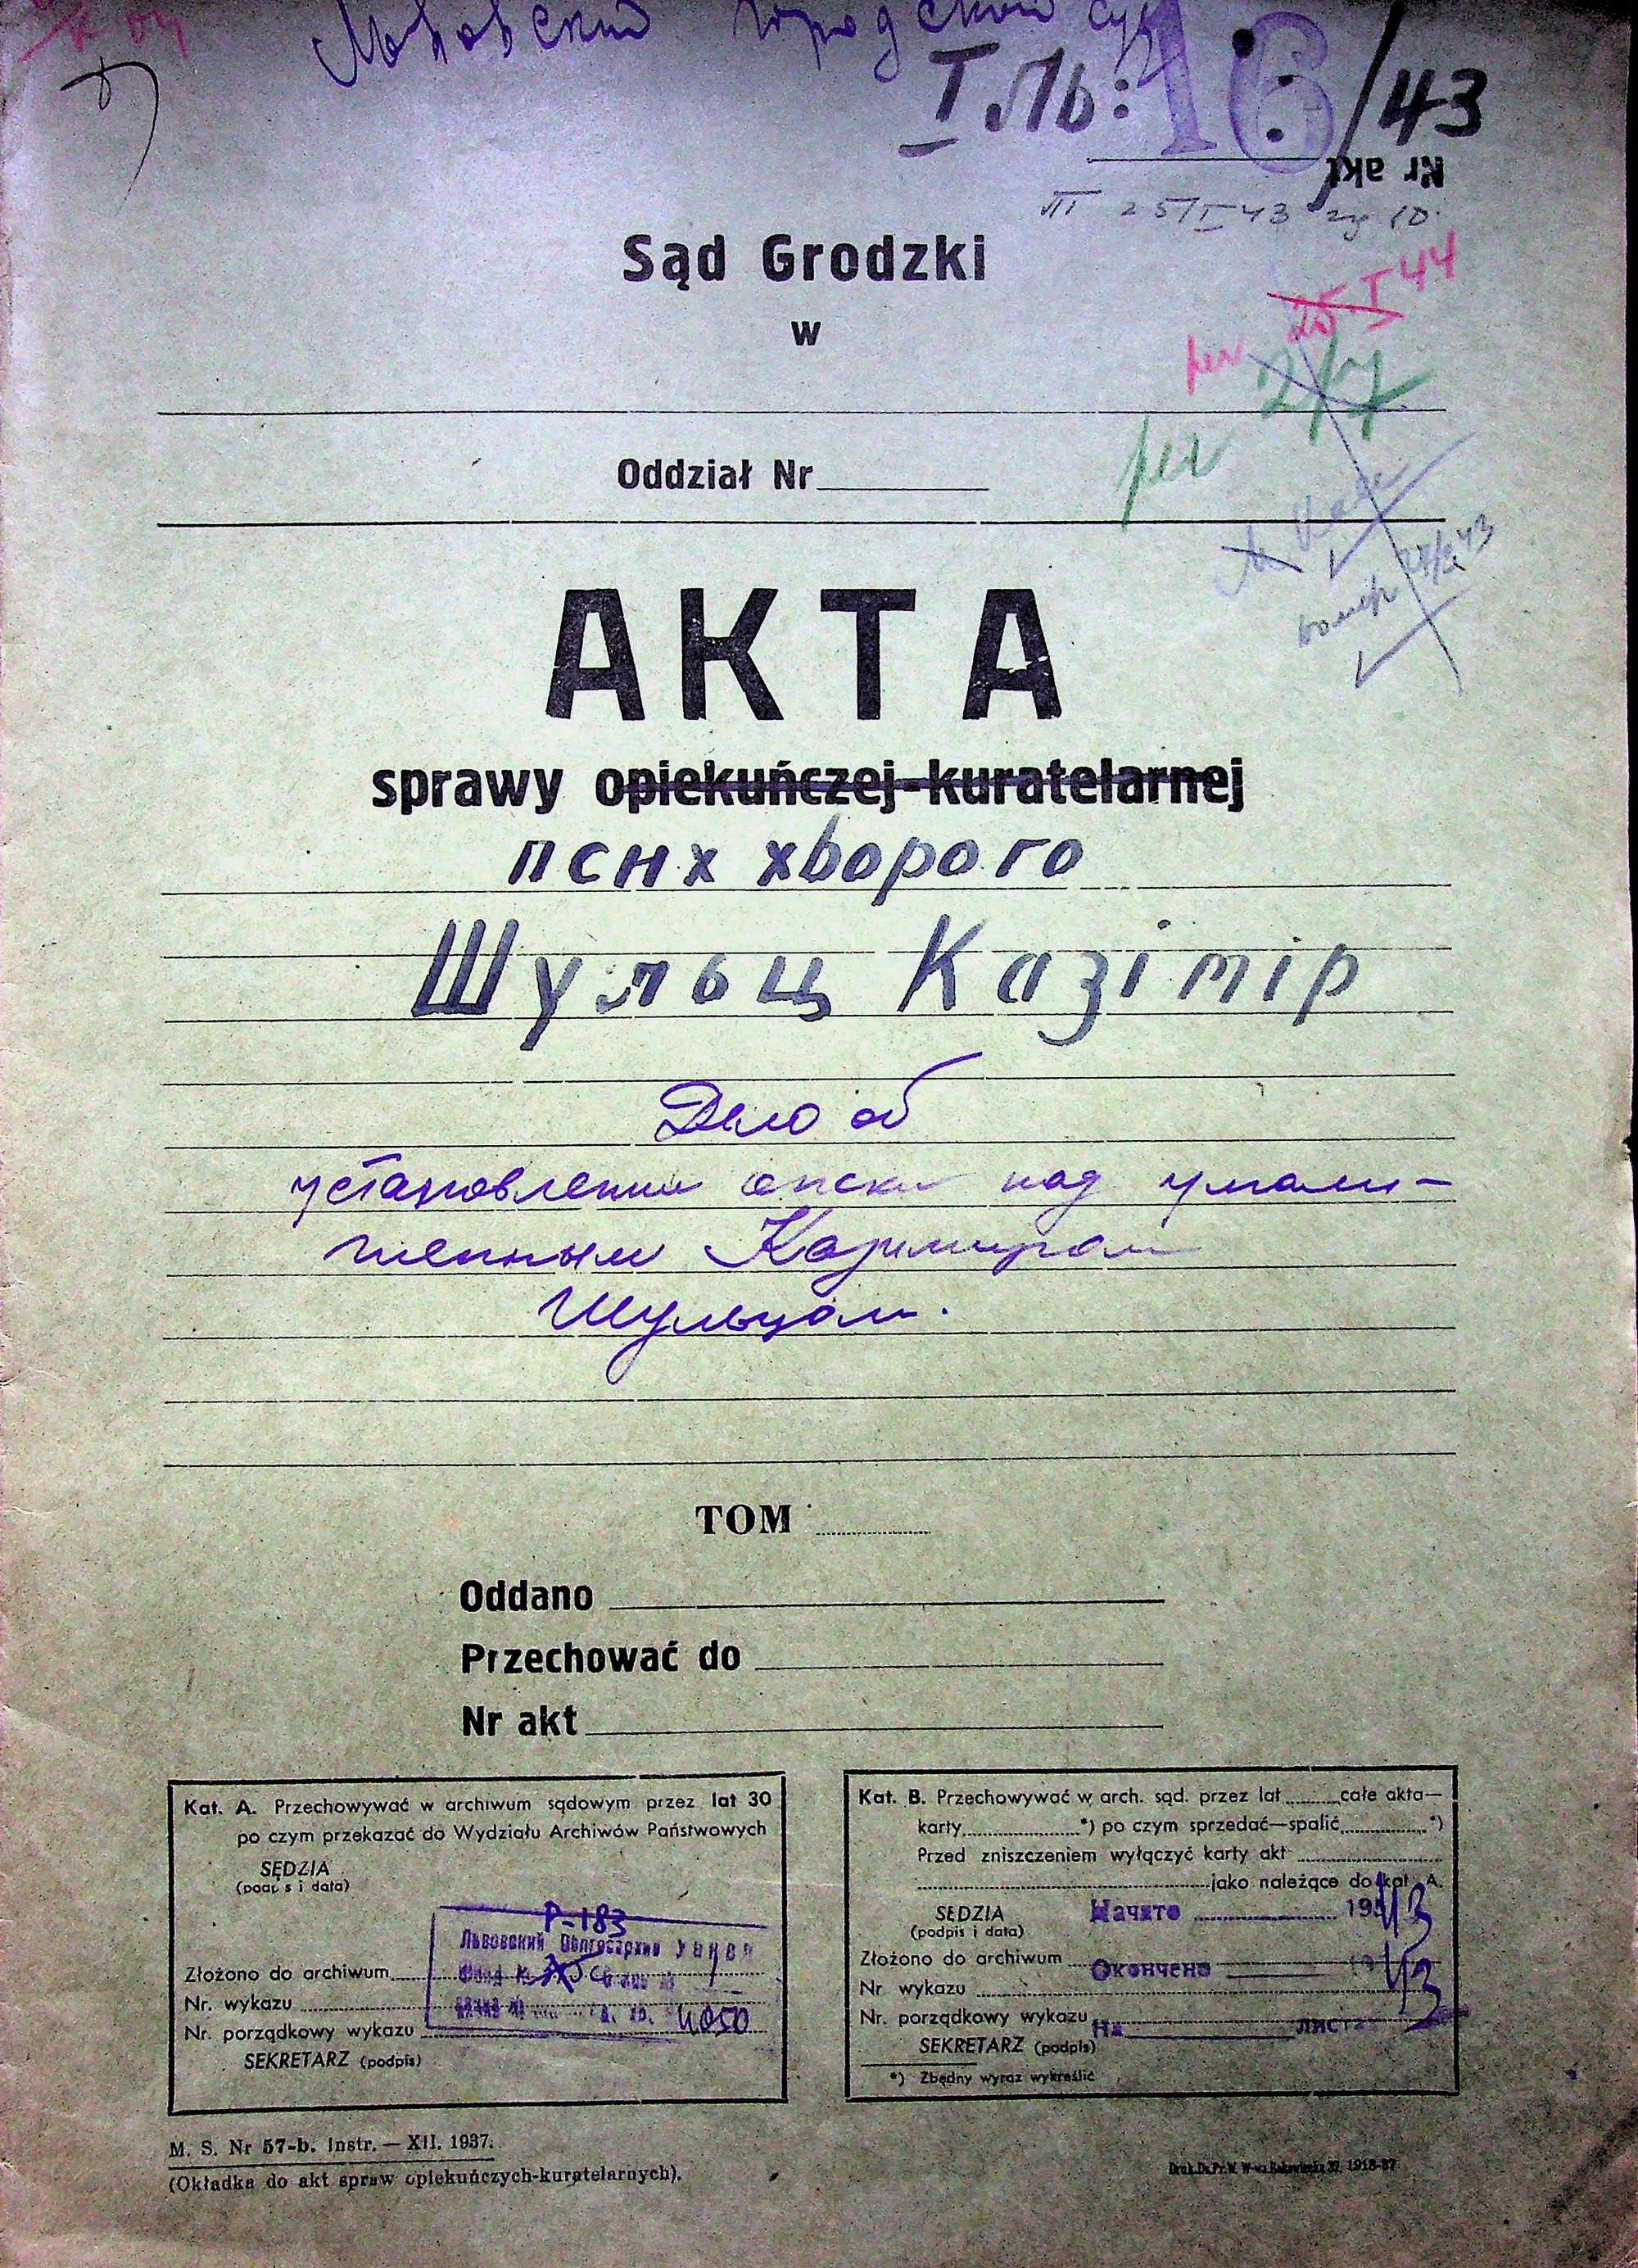 Львовский городской суд
I ЛЬ: 16/43
Nr akt
III 25/I 43
Sąd Grodzki
w
25 I 44
Oddział Nr
AKTA
sprawy opiekuńczej-kuratelarnej
псих хворого
Шульц Казімір
Дело об
установлении опеки над умали-
шенным Казимиром
Шульцом.
TOM
Oddano
Przechować do
Nr akt
Kat. A. Przechowywać w archiwum sądowym przez lat 30
po czym przekazać do Wydziału Archiwów Państwowych
SĘDZIA
(podpis i data)
Р-183
Львовский Облгосархив
Złożono do archiwum
Nr. wykazu
4050
Nr. porządkowy wykazu
SEKRETARZ (podpis)
Kat. B. Przechowywać w arch. sąd. przez lat całe akta—
karty *) po czym sprzedać—spalić *)
Przed zniszczeniem wyłączyć karty akt
jako należące do kat. A.
SĘDZIA
(podpis i data)
Начато 1943
Złożono do archiwum
Окончено 1943
Nr wykazu
Nr. porządkowy wykazu
На листах
SEKRETARZ (podpis)
*) Zbędny wyraz wykreślić
M. S. Nr 57-b. Instr. — XII. 1937.
(Okładka do akt spraw opiekuńczych-kuratelarnych).